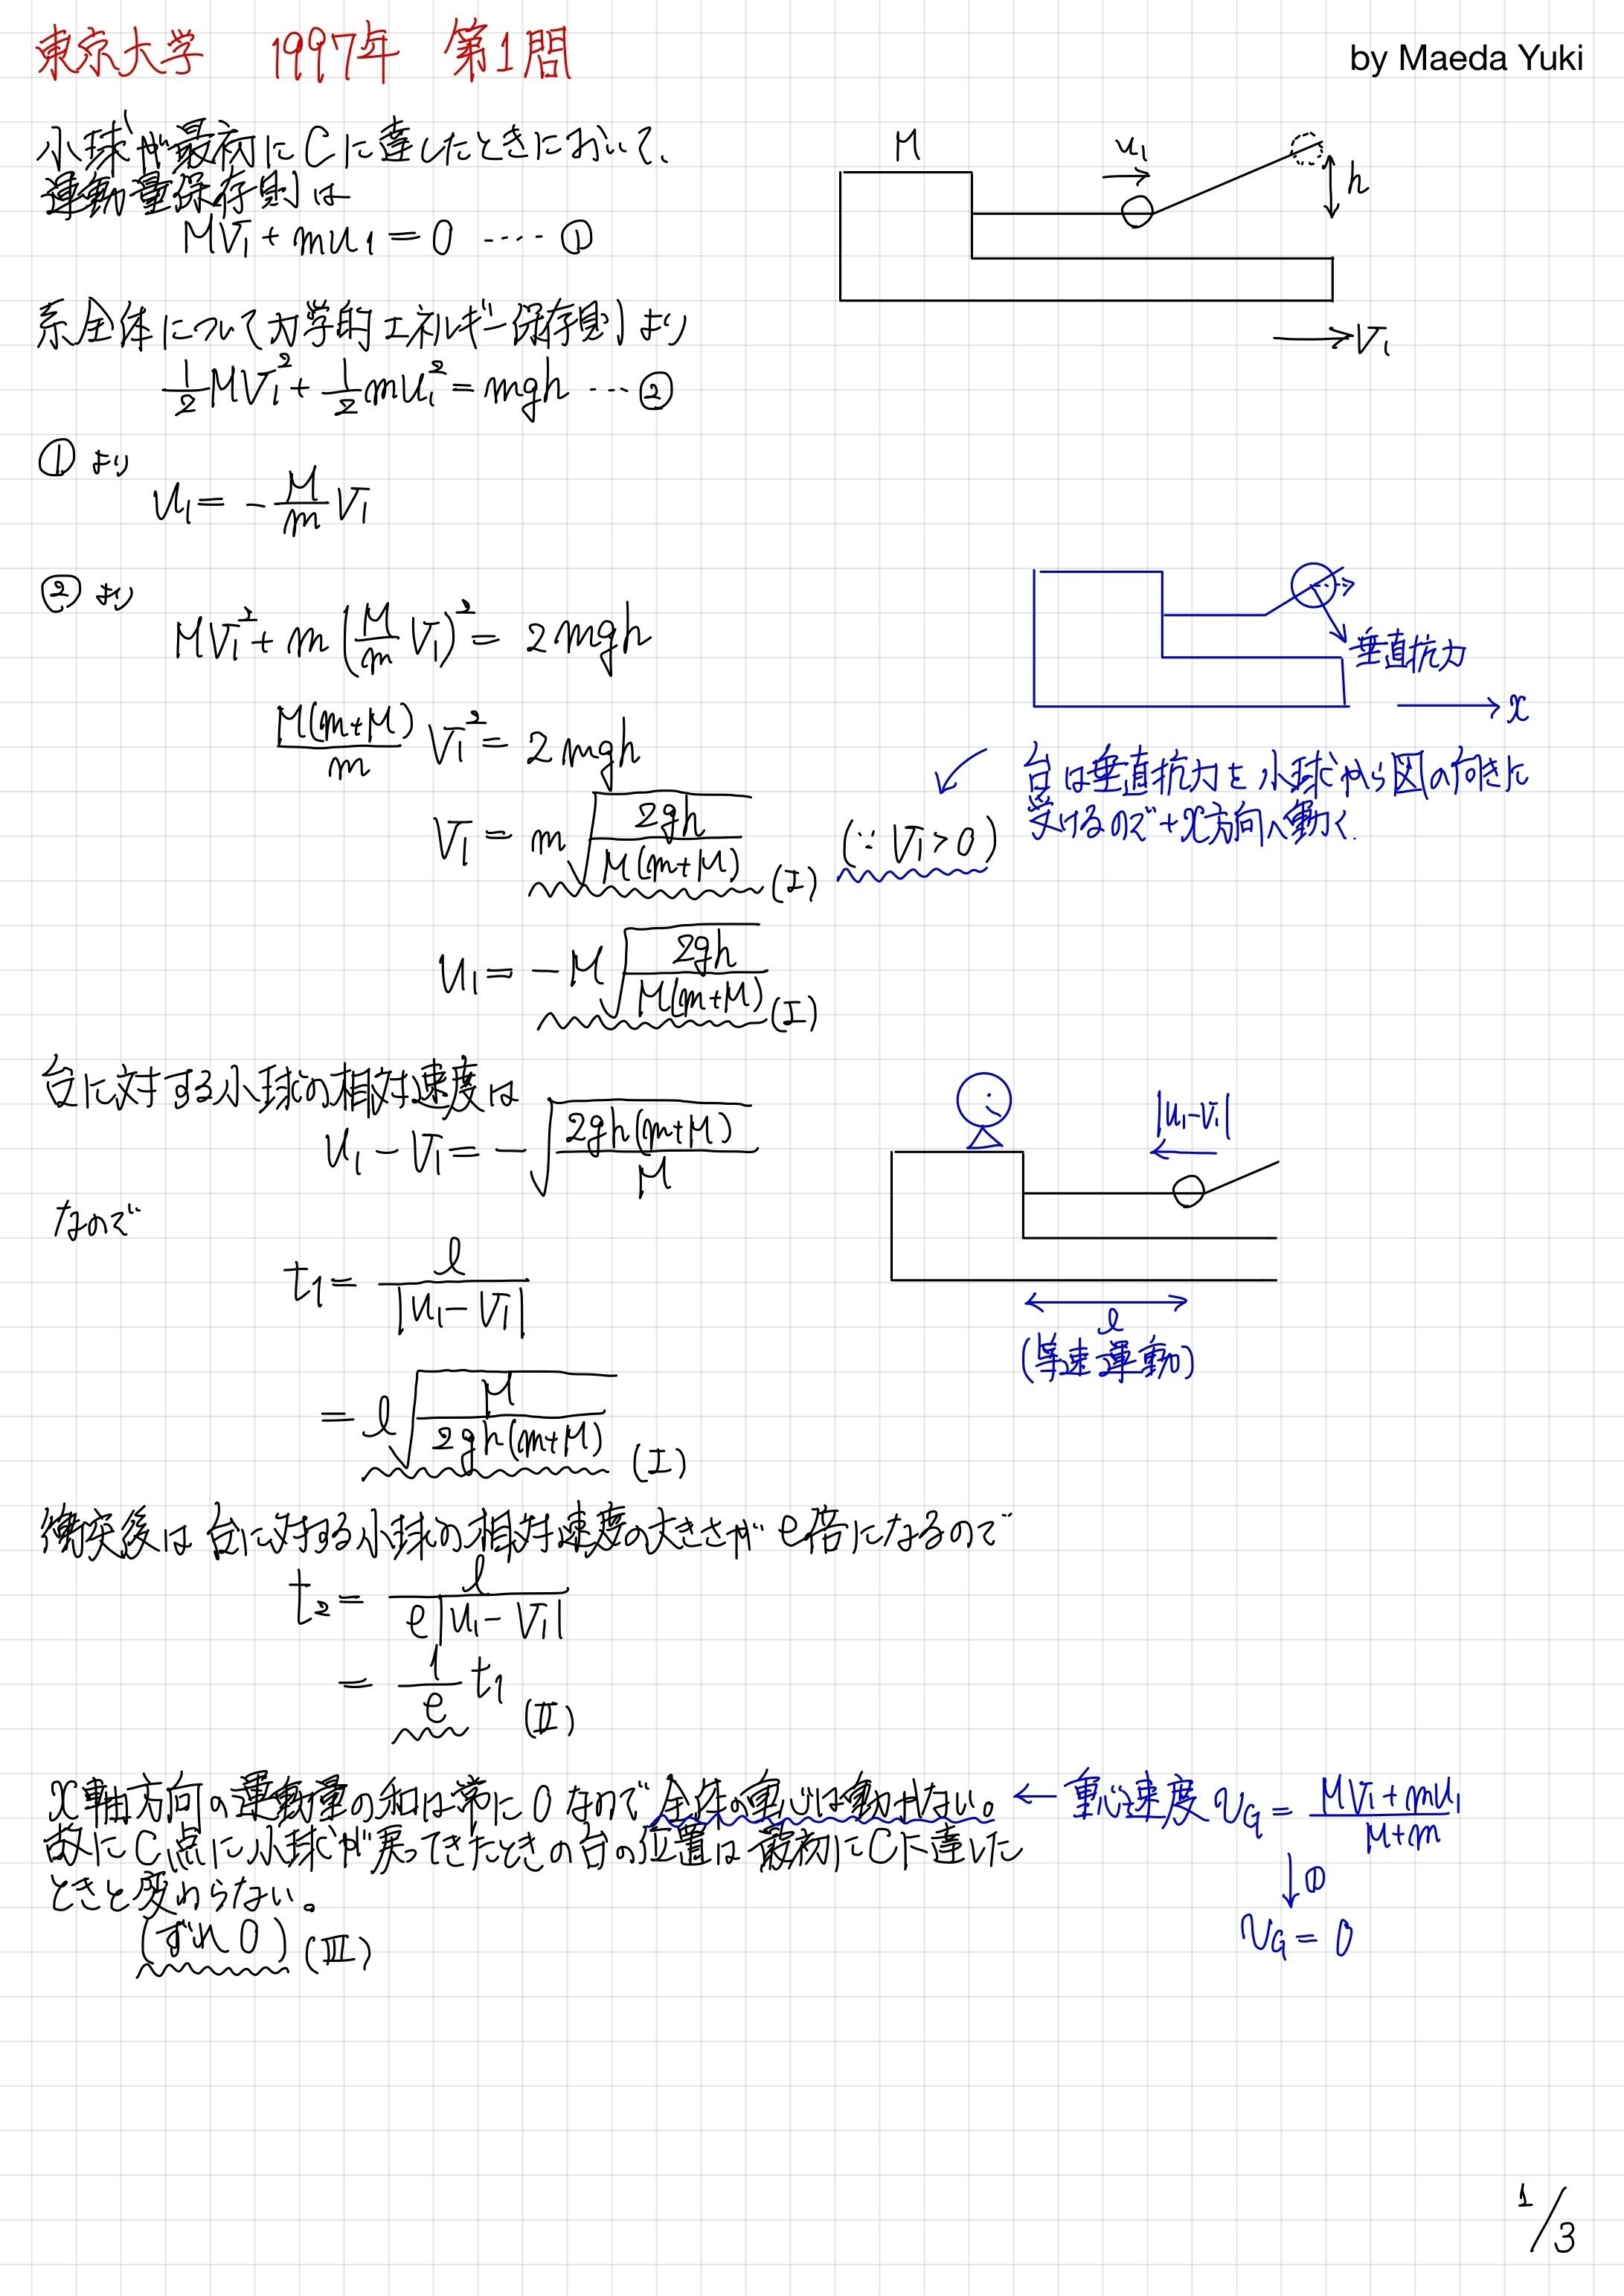 東京大学 1997年 第1問
by Maeda Yuki
小球が最初にCに達したときにおいて、
運動量保存則は
MV₁+mu₁=0 ---- ①
M
u₁
h
V₁
系全体について力学的エネルギー保存則より
1/2 MV₁²+1/2 mu₁²=mgh --- ②
①より
u₁= -M/m V₁
②より
MV₁²+m(M/m V₁)²= 2mgh
M(m+M)/m V₁²= 2mgh
V₁ = m√(2gh/M(m+M)) (I) (∵ V₁>0)
垂直抗力
x
台は垂直抗力を小球から図の向きに
受けるので+x方向へ動く.
u₁= -M√(2gh/M(m+M)) (I)
台に対する小球の相対速度は
u₁-V₁= -√(2gh(m+M)/M)
なので
|u₁-V₁|
l
(等速運動)
t₁= l/|u₁-V₁|
= l√(M/2gh(m+M)) (I)
衝突後は台に対する小球の相対速度の大きさがe倍になるので
t₂= l/e|u₁-V₁|
= 1/e t₁ (II)
x軸方向の運動量の和は常に0なので全体の重心は動かない。 ← 重心速度 v_G = MV₁+mu₁/M+m
故にC点に小球が戻ってきたときの台の位置は最初にCに達した
ときと変わらない。
↓①
v_G = 0
(ずれ0) (III)
1/3